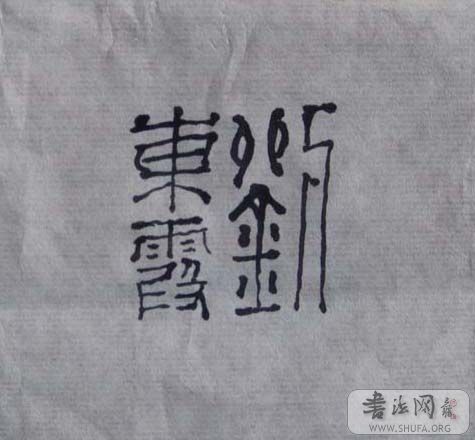 劉
東霞
書法网
WWW.SHUFA.ORG